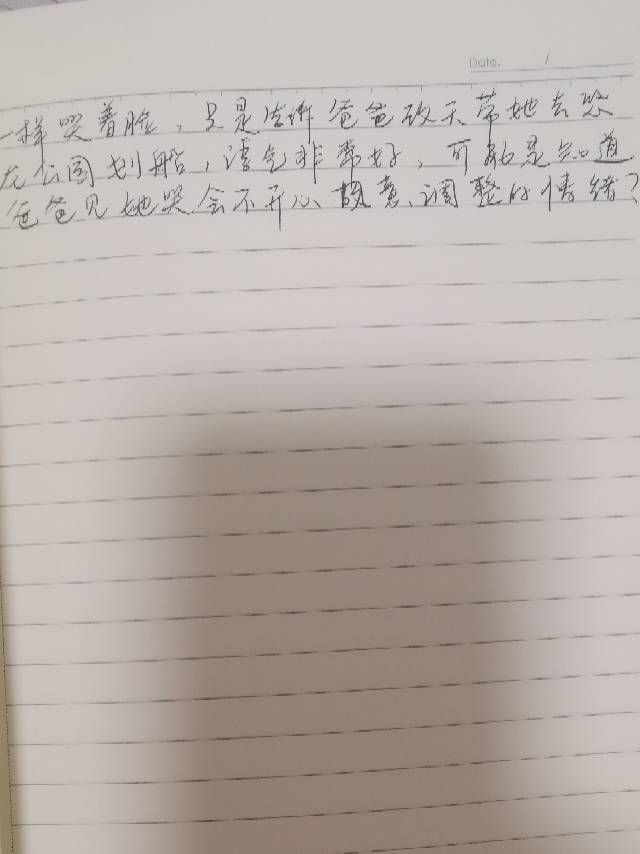 Date. /
一样哭着脸，只是告诉爸爸改天带她去悠
龙公园划船，语气非常好，可能是知道
爸爸见她哭会不开心故意调整的情绪？